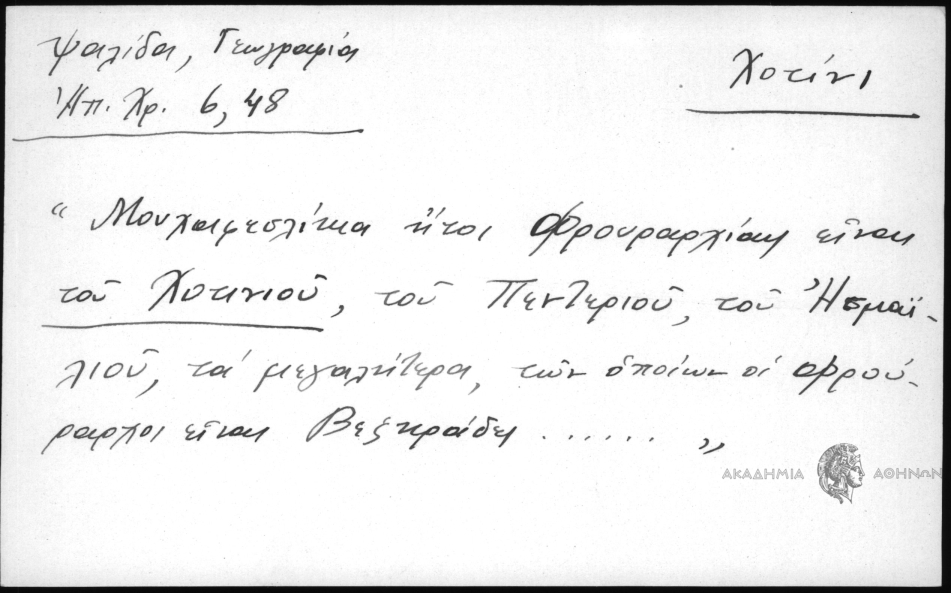 Ψαλίδα, Γεωγραφία
Ἠπ. Χρ. 6, 48
Χοτίνι
“ Μουχαφεσλίκια ἤτοι Φρουραρχίαι εἶναι
τοῦ Χοτινιοῦ, τοῦ Πεντεριοῦ, τοῦ Ἠσμαϊ-
λιοῦ, τὰ μεγαλήτερα, τῶν ὁποίων οἱ φρού-
ραρχοι εἶναι Βεζυράδες ...... „
ΑΚΑΔΗΜΙΑ ΑΘΗΝΩΝ